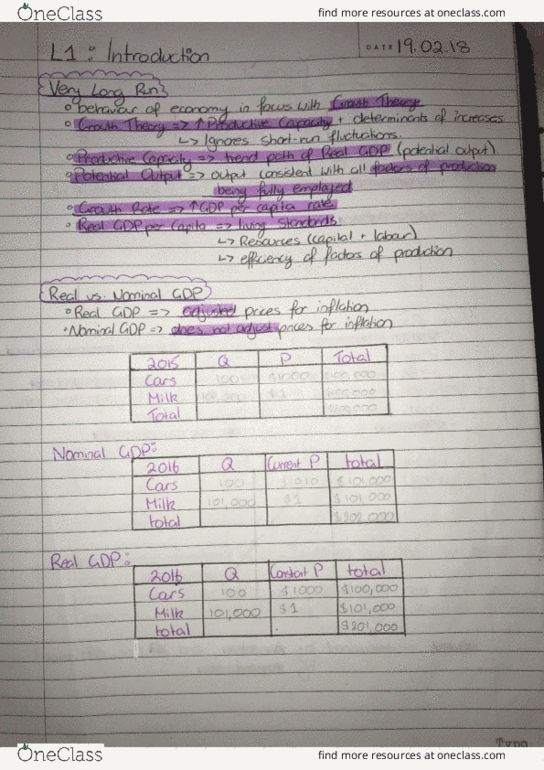 OneClass find more resources at oneclass.com
L1: Introduction DATE 19.02.18
Very Long Run:
behaviour of economy in focus with Growth Theory
Growth Theory => ↑ Productive Capacity + determinants of increases
↳ Ignores short-run fluctuations.
Productive Capacity => trend path of Real GDP (potential output)
Potential Output => output consistent with all factors of production
being fully employed
Growth Rate => ↑ GDP per capita rate
Real GDP per Capita => living standards:
↳ Resources (capital + labour)
↳ efficiency of factors of production
Real vs. Nominal GDP
Real GDP => adjusted prices for inflation
Nominal GDP => does not adjust prices for inflation
2015 Q P Total
Cars 100 $1000 $100,000
Milk
Total
Nominal GDP:
2016 Q Current P total
Cars 100 $1010 $101,000
Milk 101,000 $1 $101,000
total $202,000
Real GDP:
2016 Q Constant P total
Cars 100 $1000 $100,000
Milk 101,000 $1 $101,000
total $201,000
OneClass find more resources at oneclass.com